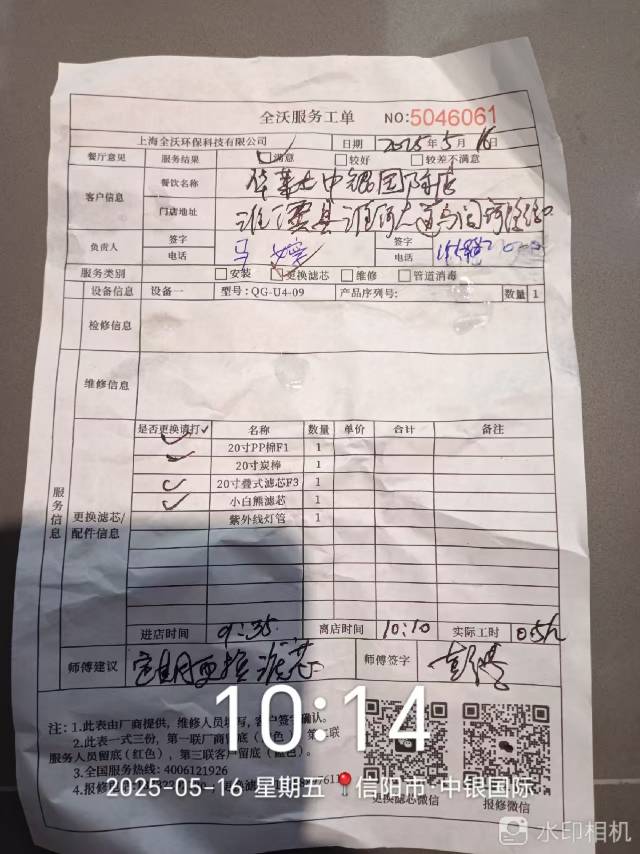 全沃服务工单 NO:5046061
上海全沃环保科技有限公司 日期 2025年5月16日
餐厅意见 服务结果 ✓满意 □较好 □较差不满意
客户信息 餐饮名称 华莱士中银国际店
门店地址 淮滨县淮河大道与
负责人 签字 电话 马 签字 电话
服务类别 □安装 ☑更换滤芯 □维修 □管道消毒
设备信息 设备一 型号:QG-U4-09 产品序列号: 数量 1
检修信息
维修信息
服务信息
更换滤芯/配件信息
是否更换请打✓ 名称 数量 单价 合计 备注
✓ 20寸PP棉F1 1
✓ 20寸炭棒 1
✓ 20寸叠式滤芯F3 1
✓ 小白熊滤芯 1
紫外线灯管 1
进店时间 9:35 离店时间 10:10 实际工时 0.5h
师傅建议 定期更换滤芯 师傅签字 彭
10:14
注:1.此表由厂商提供,维修人员填写,客户签字确认。
2.此表一式三份,第一联厂商留底(白色),第二联
服务人员留底(红色),第三联客户留底(蓝色)。
3.全国服务热线:4006121926
4.报修
更换滤芯微信 报修微信
2025-05-16 星期五 信阳市·中银国际
水印相机